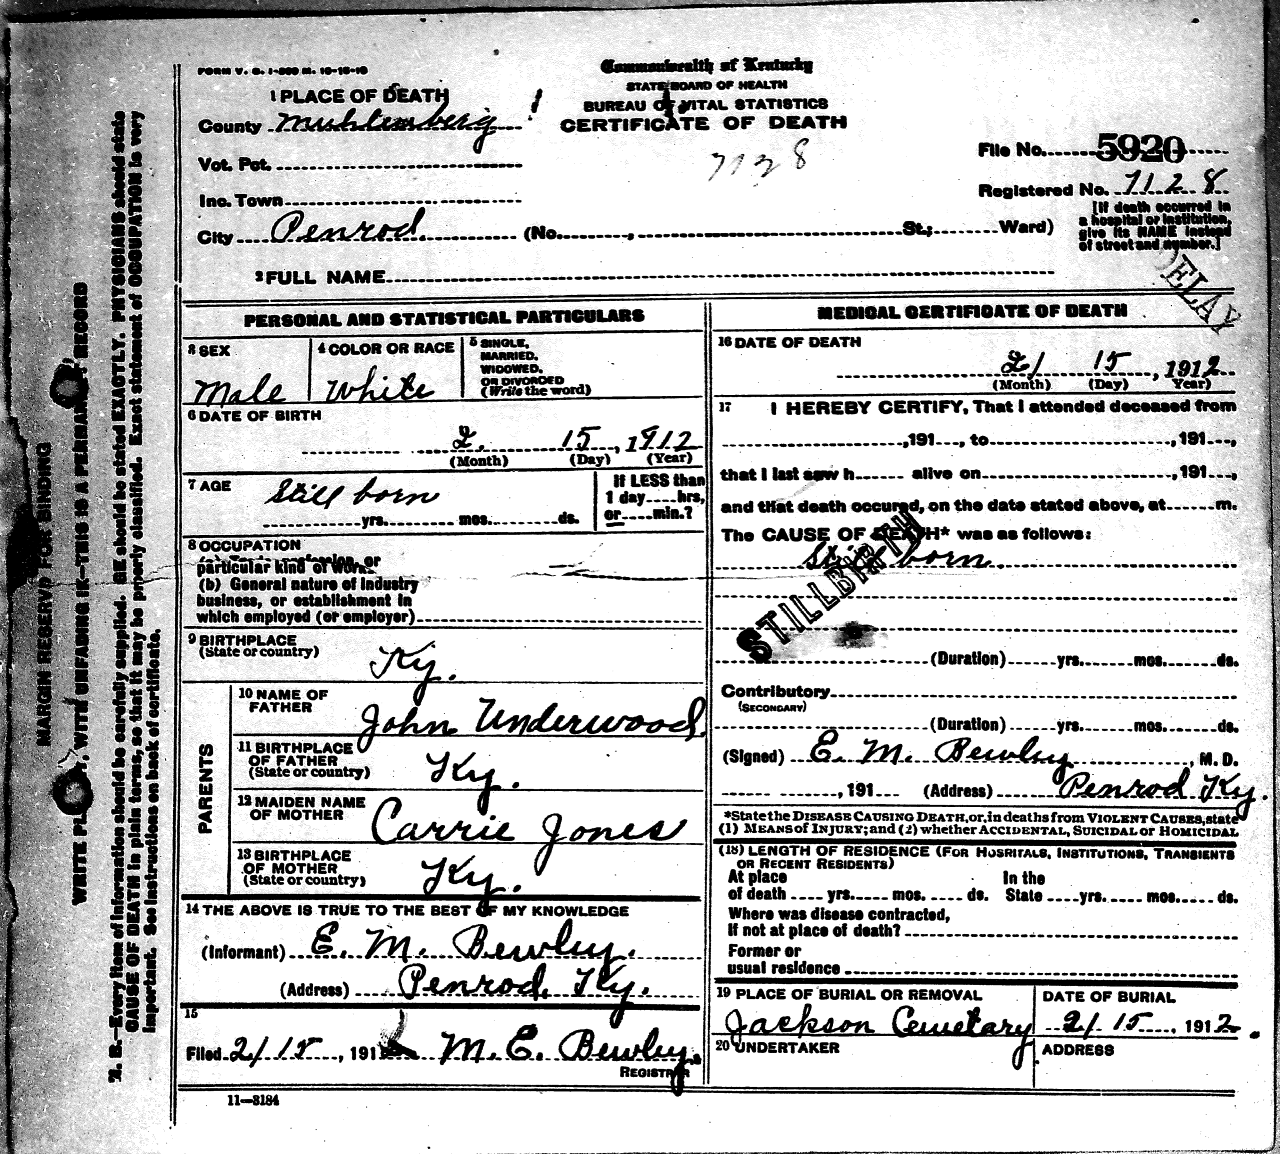 FORM V. S. 1-300 M. 10-16-10
Commonwealth of Kentucky
STATE BOARD OF HEALTH
BUREAU OF VITAL STATISTICS
CERTIFICATE OF DEATH
7128
1 PLACE OF DEATH
County Muhlenberg
Vot. Pct.
Inc. Town
City Penrod (No. , St.; Ward)
File No. 5920
Registered No. 7128
[If death occurred in
a hospital or institution,
give its NAME instead
of street and number.]
DELAY
2 FULL NAME
PERSONAL AND STATISTICAL PARTICULARS
3 SEX
Male
4 COLOR OR RACE
White
5 SINGLE,
MARRIED,
WIDOWED,
OR DIVORCED
(Write the word)
6 DATE OF BIRTH
2. 15, 1912
(Month) (Day) (Year)
7 AGE
Still born
yrs. mos. ds.
If LESS than
1 day hrs,
or min.?
8 OCCUPATION
particular kind of work
(b) General nature of industry
business, or establishment in
which employed (or employer)
9 BIRTHPLACE
(State or country)
Ky.
PARENTS
10 NAME OF
FATHER
John Underwood.
11 BIRTHPLACE
OF FATHER
(State or country)
Ky.
12 MAIDEN NAME
OF MOTHER
Carrie Jones
13 BIRTHPLACE
OF MOTHER
(State or country)
Ky.
14 THE ABOVE IS TRUE TO THE BEST OF MY KNOWLEDGE
(Informant) E. M. Bewley.
(Address) Penrod, Ky.
15
Filed 2/15, 191 M. E. Bewley.
REGISTRAR
11—3184
MEDICAL CERTIFICATE OF DEATH
16 DATE OF DEATH
2/ 15, 1912
(Month) (Day) (Year)
17 I HEREBY CERTIFY, That I attended deceased from
,191 , to ,191 ,
that I last saw h alive on ,191 ,
and that death occured, on the date stated above, at m.
The CAUSE OF DEATH* was as follows:
Still born
STILLBIRTH
(Duration) yrs. mos. ds.
Contributory
(SECONDARY)
(Duration) yrs. mos. ds.
(Signed) E. M. Bewley, M. D.
, 191 (Address) Penrod Ky.
*State the DISEASE CAUSING DEATH, or, in deaths from VIOLENT CAUSES, state
(1) MEANS of INJURY; and (2) whether ACCIDENTAL, SUICIDAL or HOMICIDAL
(18) LENGTH OF RESIDENCE (FOR HOSPITALS, INSTITUTIONS, TRANSIENTS
OR RECENT RESIDENTS)
At place
of death yrs. mos. ds.
In the
State yrs. mos. ds.
Where was disease contracted,
If not at place of death?
Former or
usual residence
19 PLACE OF BURIAL OR REMOVAL
Jackson Cemetary
DATE OF BURIAL
2/ 15, 1912.
20 UNDERTAKER
ADDRESS
MARGIN RESERVED FOR BINDING
WRITE PLAINLY, WITH UNFADING INK—THIS IS A PERMANENT RECORD
N. B.—Every item of information should be carefully supplied. AGE should be stated EXACTLY. PHYSICIANS should state
CAUSE OF DEATH in plain terms, so that it may be properly classified. Exact statement of OCCUPATION is very
important. See instructions on back of certificate.